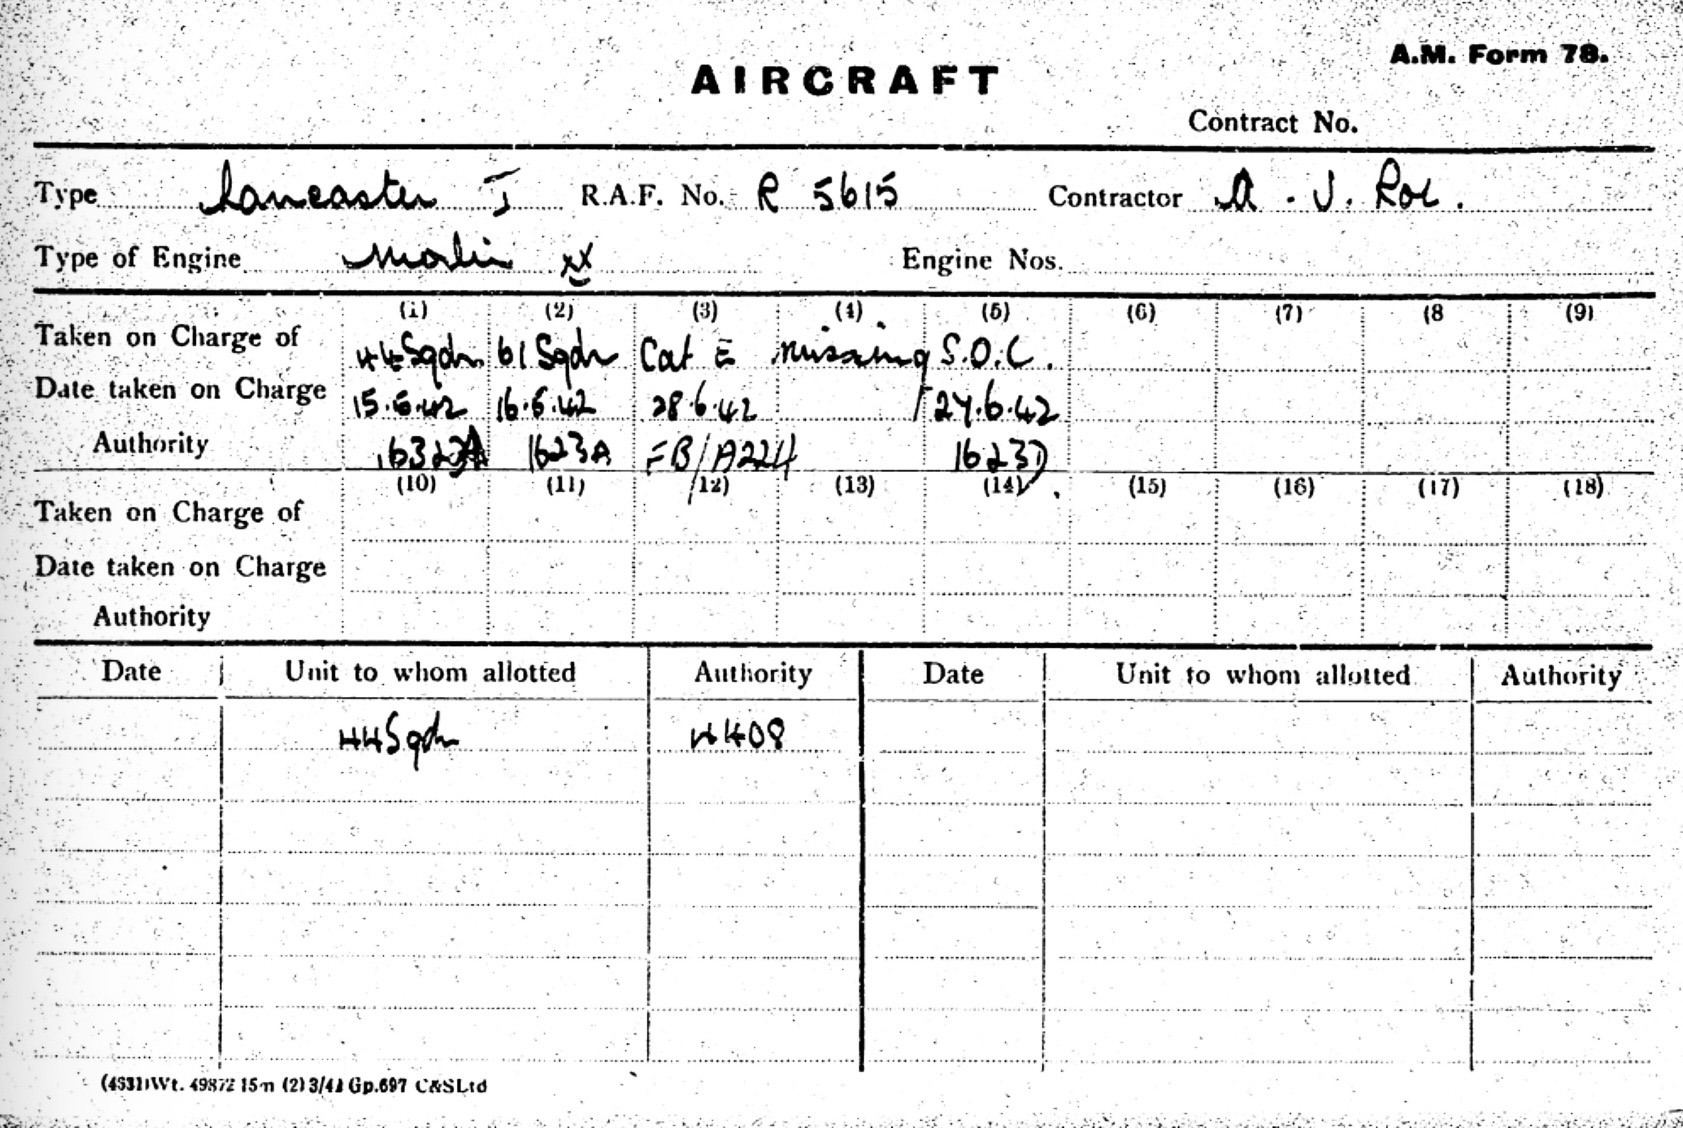 A.M. Form 78.
AIRCRAFT
Contract No.
Type Lancaster I R.A.F. No. R 5615 Contractor A . V. Roe.
Type of Engine Merlin XX Engine Nos.
(1) (2) (3) (4) (5) (6) (7) (8 (9)
Taken on Charge of 44 Sqdn 61 Sqdn Cat E missing S.O.C.
Date taken on Charge 16.6.42 28.6.42 27.6.42
Authority 1623A FB/A224 1623D
(10) (11) (12) (13) (14) (15) (16) (17) (18)
Taken on Charge of
Date taken on Charge
Authority
Date Unit to whom allotted Authority Date Unit to whom allotted Authority
44 Sqdn 4408
(4531) Wt. 49872 15m (2) 3/41 Gp.697 C&SLtd